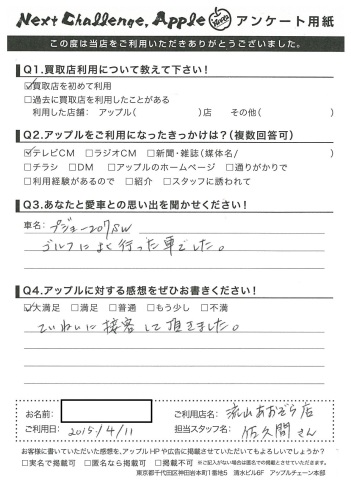 Next Challenge, Apple アンケート用紙
この度は当店をご利用いただきありがとうございました。
Q1.買取店利用について教えて下さい!
☑買取店を初めて利用
□過去に買取店を利用したことがある
利用した店舗: アップル( )店 その他( )
Q2.アップルをご利用になったきっかけは?(複数回答可)
☑テレビCM □ラジオCM □新聞・雑誌(媒体名/ )
□チラシ □DM □アップルのホームページ □通りがかりで
□利用経験があるので □紹介 □スタッフに誘われて
Q3.あなたと愛車との思い出を聞かせください!
車名: プジョー207SW
ゴルフによく行った車でした。
Q4.アップルに対する感想をぜひお書きください!
☑大満足 □満足 □普通 □もう少し □不満
ていねいに接客して頂きました。
お名前: ご利用店名: 流山あおぞら店
ご利用日: 2015/4/11 担当スタッフ名: 佐久間さん
お客様に書いていただいた感想を、アップルHPや広告に掲載させていただいてもよろしいでしょうか?
□実名で掲載可 □匿名なら掲載可 □掲載不可 ※ご記入がない場合は匿名での掲載とさせていただきます。
東京都千代田区神田岩本町1番地5 清水ビル6F アップルチェーン本部